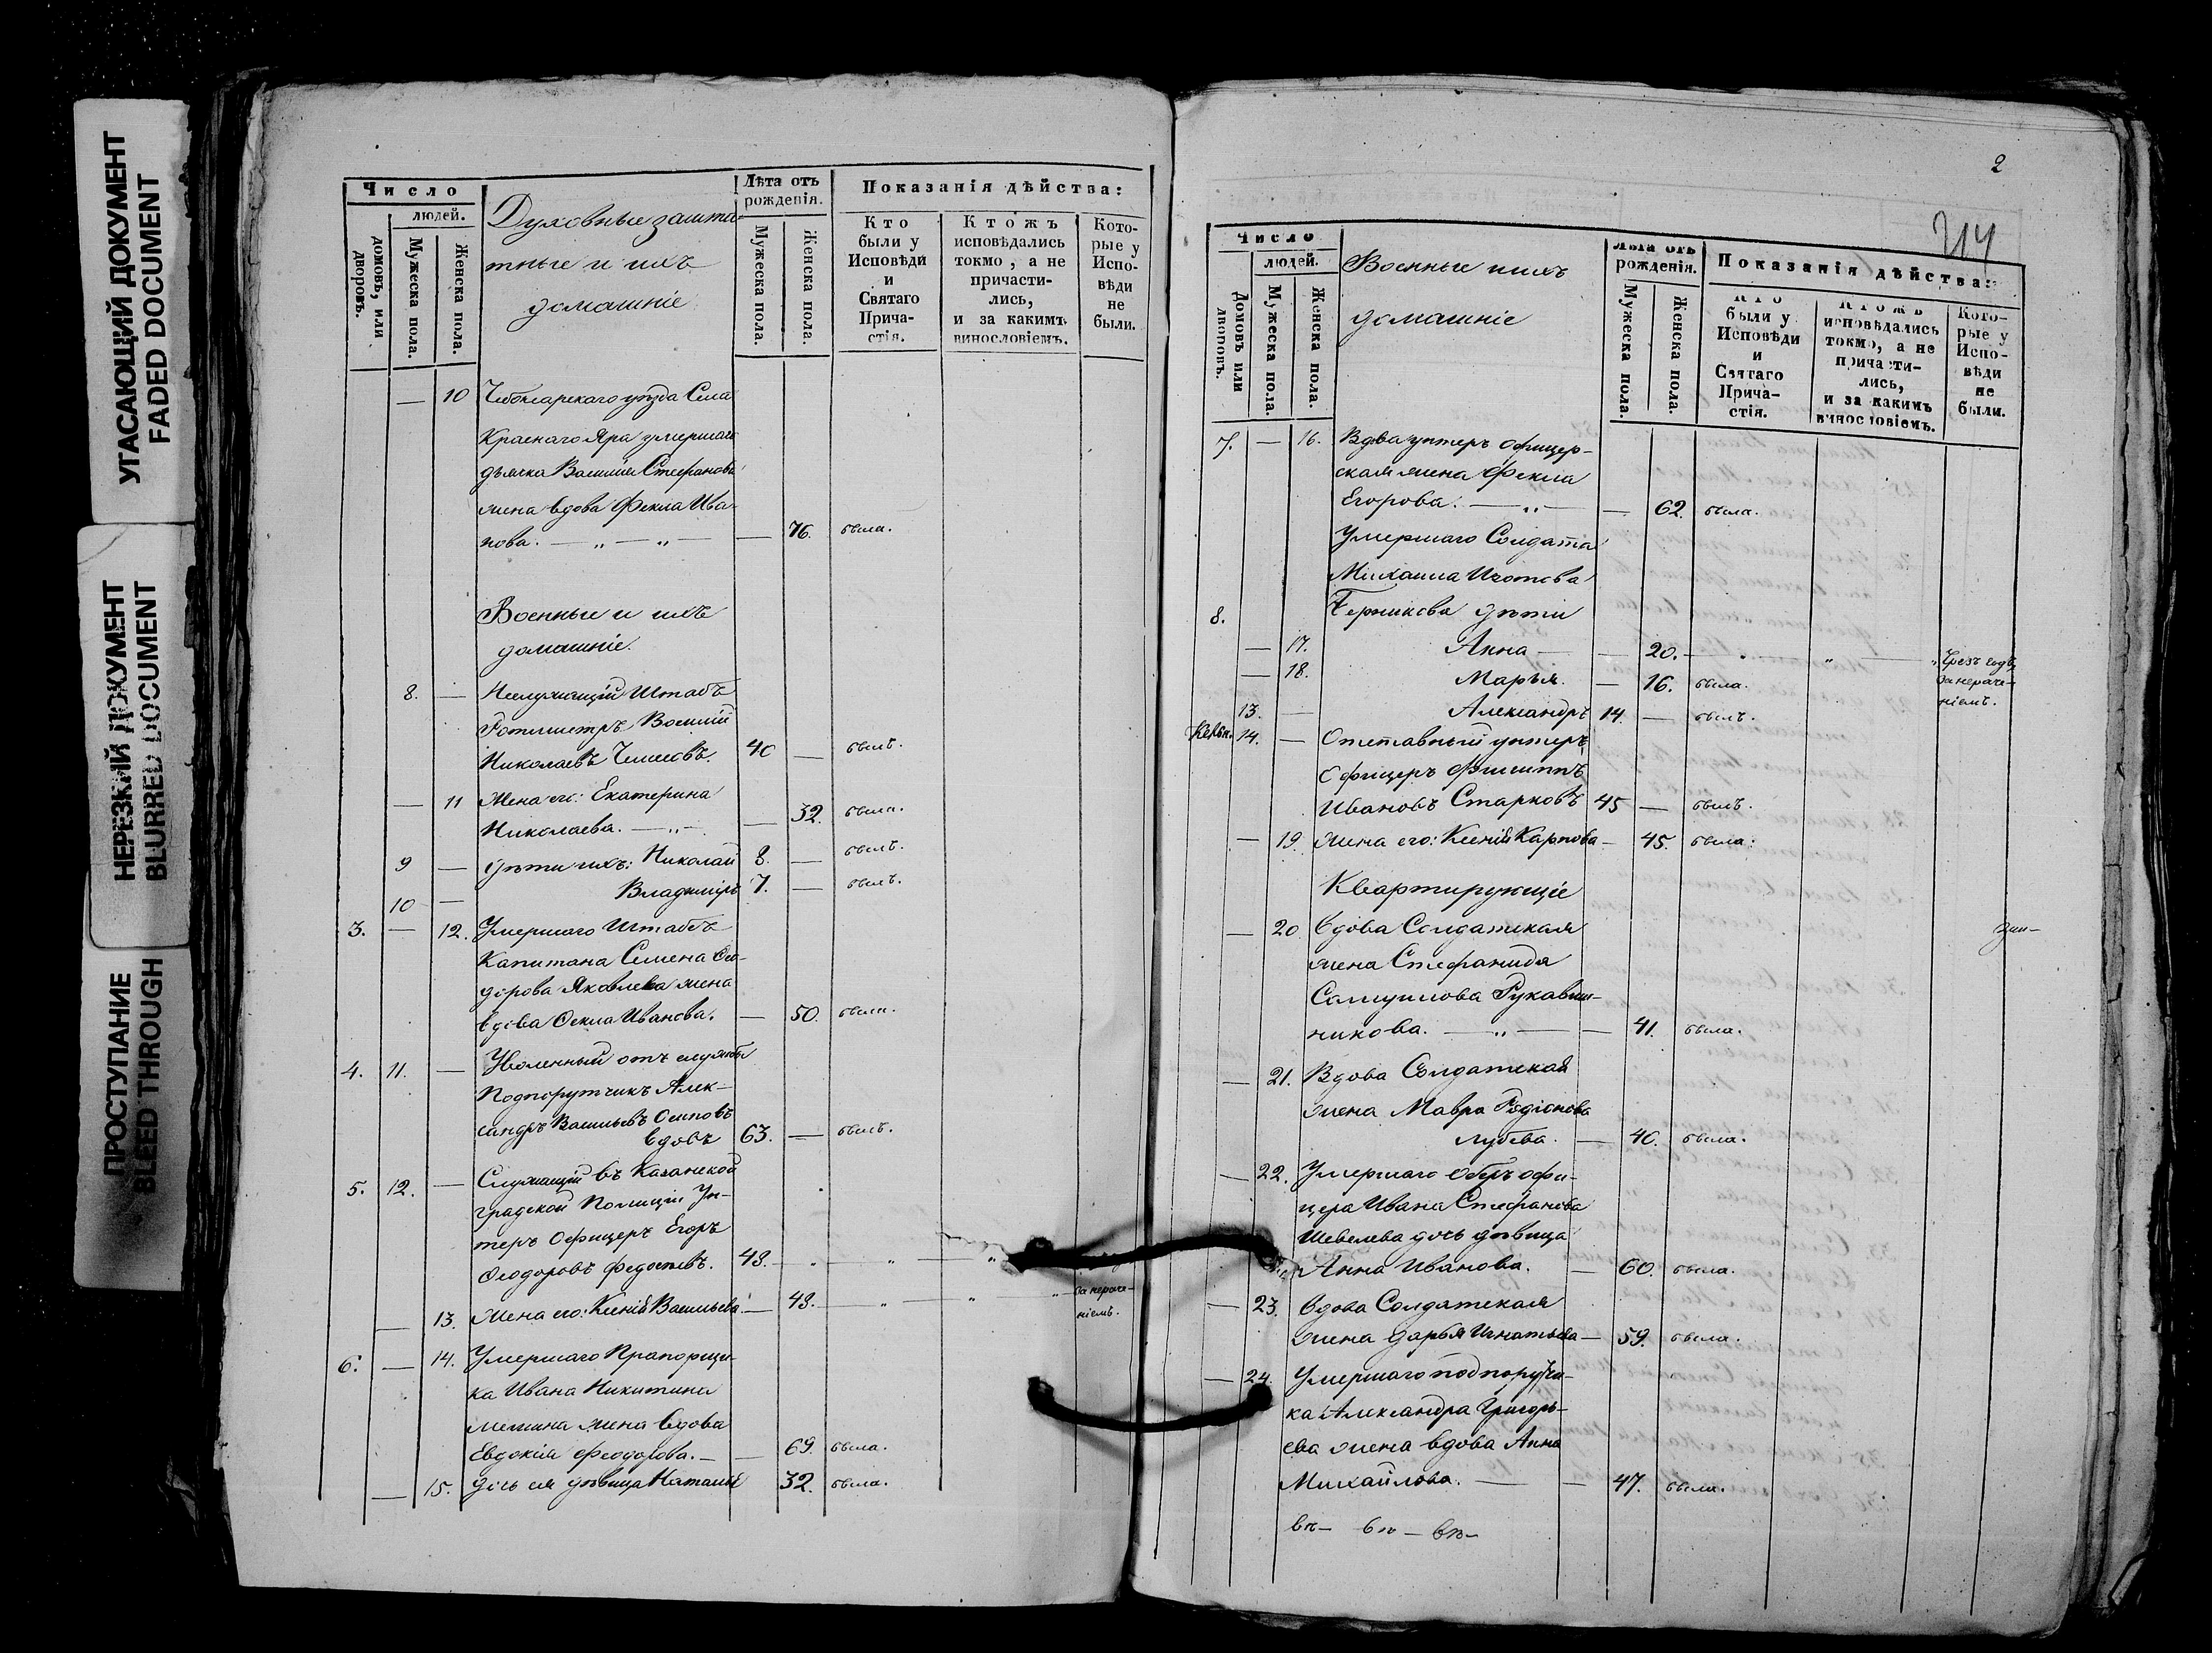 УГАСАЮЩИЙ ДОКУМЕНТ
FADED DOCUMENT
НЕРЕЗКИЙ ДОКУМЕНТ
BLURRED DOCUMENT
ПРОСТУПАНИЕ
BLEED THROUGH
Число
людей.
домовъ, или дворовъ.
Мужеска пола.
Женска пола.
Духовные зашта-
тные и ихъ
домашніе
Лѣта отъ рожденія.
Мужеска пола.
Женска пола.
Показанія дѣйства:
Кто были у Исповѣди и Святаго Прича-стія.
Ктожъ исповѣдались токмо, а не причасти-лись, и за какимъ винословіемъ.
Кото-рые у Испо-вѣди не были.
— 10 Чебоксарскаго уѣзда Села
Краснаго Яра умершаго
дьячка Василія Стефанова
жена вдова Фекла Ива-
нова. — „ — „ — — 76. была.
Военные и ихъ
домашніе.
8. — Неслужащій Штабъ
Ротмистръ Василій
Николаевъ 40 — былъ.
— 11 Жена его: Екатерина
Николаева. — „ — — 32. была.
9 — дѣти ихъ: Николай 8. — былъ.
10 — Владиміръ 7. — былъ.
3. — 12. Умершаго Штабсъ
Капитана Семена Ѳео-
дорова Яковлева жена
вдова Ѳекла Иванова. — 50. была.
4. 11. — Уволенный отъ службы
Подпорутчикъ Алек-
сандръ Васильевъ Осиповъ
вдовъ 63. — былъ.
5. 12. — Служащій въ Казанской
градской Полиціи Ун-
теръ Офицеръ Егоръ
Ѳеодоровъ Федосѣевъ. 48. — „ — „ — „
— 13. Жена его: Ксенія Васильева — 48. — „ — „ — „ за нераче-
ніемъ.
6. — 14. Умершаго Прапорщи-
ка Ивана Никитина
жена вдова
Евдокія Феодорова. — — 69. была.
— 15. дочь ея дѣвица Наталія 32. была.
2
314
Число
людей.
Домовъ или дворовъ.
Мужеска пола.
Женска пола.
Военные и ихъ
домашніе
Лѣта отъ рожденія.
Мужеска пола.
Женска пола.
Показанія дѣйства:
Кто были у Исповѣди и Святаго Прича-стія.
Ктожъ исповѣдались токмо, а не причасти-лись, и за какимъ винословіемъ.
Кото-рые у Испо-вѣди не были.
7. — 16. Вдова унтеръ офицер-
ская жена Фекла
Егорова. — „ — — 62. была.
Умершаго Солдата
Михаила Изотова
8. Берникова дѣти
— 17. Анна — — 20. — „ „ „ Чрезъ годъ
— 18. Марья. — 16. была. за нераче-
ніемъ.
13. — Александръ 14. — былъ.
14. — Отставный унтеръ
Офицеръ Филиппъ
Ивановъ Старковъ 45 — былъ.
— 19. жена его: Ксенія Карпова — 45. была.
Квартирующіе
— 20. вдова Солдатская
жена Стефанида
Самуилова Рукавиш-
никова. — „ — — 41. была.
— 21. Вдова Солдатская
жена Мавра Родіонова
— 40. была.
— 22. Умершаго Оберъ офи-
цера Ивана Стефанова
Шевелева дочь дѣвица
Анна Иванова. — 60. была.
— 23. вдова Солдатская
жена Дарья Игнатьева — 59. была.
— 24. Умершаго подпорутчи-
ка Александра Григорь-
ева жена вдова Анна
Михайлова. — — 47. была.